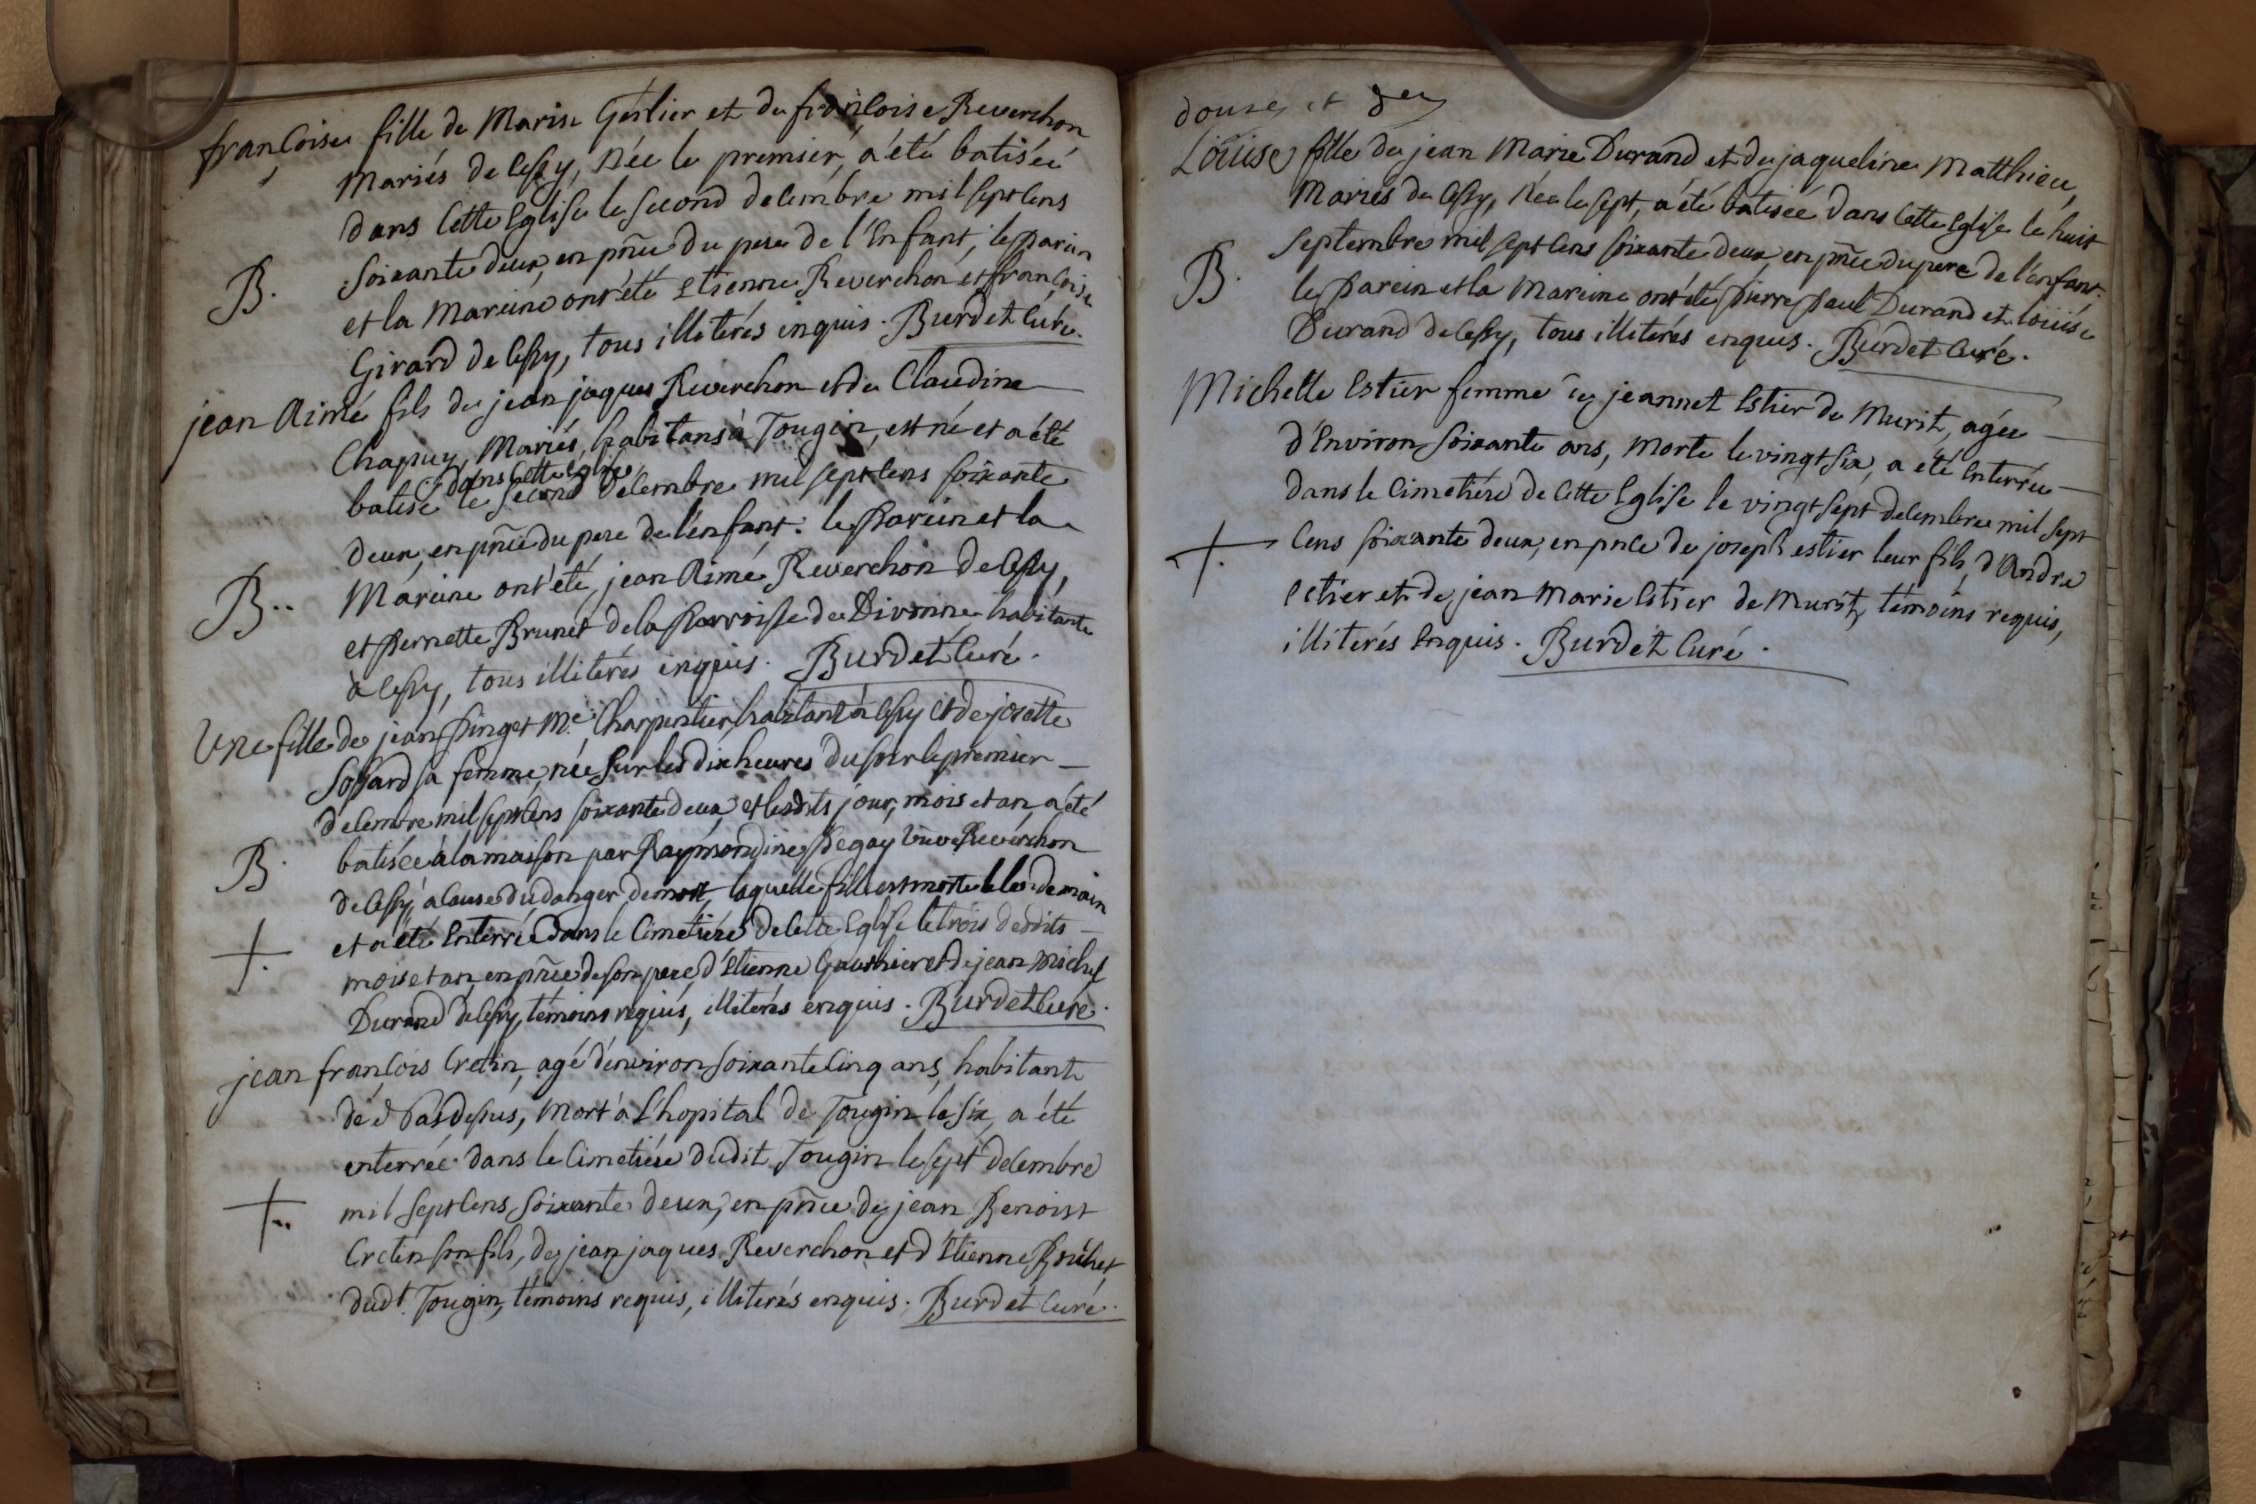 françoise fille de Marin Gerlier et de françoise Reverchon
Mariés de Cessy, Née le premier, a été batisée
dans Cette Eglise le second decembre mil sept cens
B. Soixante deux, en pñce du pere de l'Enfant, le parein
et la Mareine ont été Etienne Reverchon et françoise
Girard de Cessy, tous illiterés enquis. Burdet Curé.
jean Aimé fils de jean jaques Reverchon et de Claudine
Chapuy, Mariés, habitans à Tougin, est né et a été
dans Cette Eglise
batisé le second decembre mil sept cens soixante
deux, en pñce du pere de l'enfant: le parein et la
B.. Mareine ont été, jean Aimé Reverchon de Cessy,
et Pernette Brunet de la Parroisse de Divonne habitante
à Cessy, tous illiterés enquis. Burdet Curé.
Une fille de jean Pinget Me. Charpentier habitant à Cessy et de josette
Sa femme, née sur les dix heures du soir le premier
decembre mil sept cens soixante deux, et lesdits jour, mois et an, a été
B. batisée à la maison par Raymondine Degay Reverchon
de Cessy, à cause du danger de mort, laquelle fille est morte le lendemain
+. et a été Enterrée dans le Cimetiére de Cette Eglise le trois desdits
mois et an, en pñce de son pere, d'Etienne Gauthier et de jean Michel
Durand de Cessy, témoins requis, illiterés enquis. Burdet Curé.
jean françois Cretin, agé d'environ soixante Cinq ans, habitant
de Pasdessus, Mort à l'hopital de Tougin le six, a été
enterrée dans le Cimetiére dudit Tougin le sept decembre
+.. mil sept cens soixante deux, en pñce de jean Benoist
Cretin son fils, de jean jaques Reverchon et d'Etienne
dudt. Tougin, témoins requis, illiterés enquis. Burdet Curé.
douze et
Loüise fille de jean Marie Durand et de jaqueline Matthieu,
Mariés de Cessy, Née le sept, a été batisée dans Cette Eglise le huit
septembre mil sept cens soixante deux, en pñce du pere de l'enfant.
B. le parein et la Mareine ont été pierre paul Durand et Loüise
Durand de Cessy, tous illiterés enquis. Burdet Curé.
Michelle Estier femme de jeannet Estier de Murit, agée
d'Environ soixante ans, Morte le vingt six, a été Enterrée
dans le Cimetiére de Cette Eglise le vingt sept decembre mil sept
+. Cens soixante deux, en pnce de joseph estier leur fils, d'Andre
Estier et de jean Marie Estier de Murit, témoins requis,
illiterés Enquis. Burdet Curé.